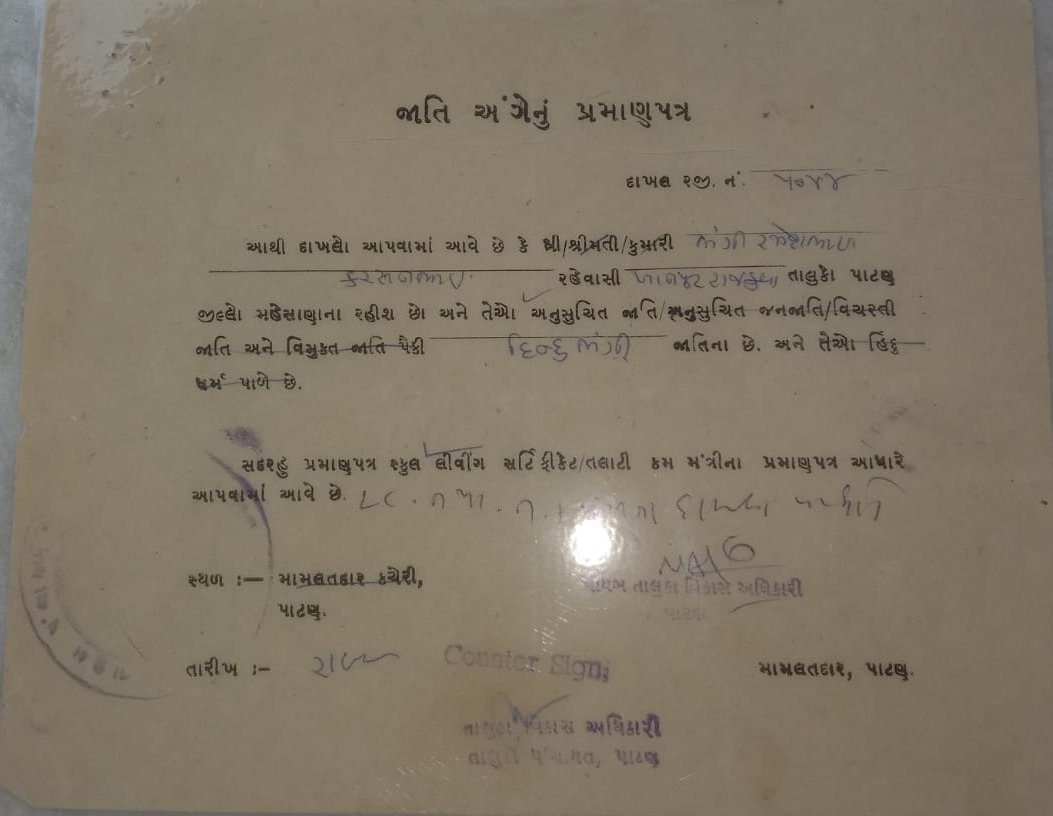 જાતિ અંગેનું પ્રમાણપત્ર
દાખલ રજી. નં. ૫૦૪૪
આથી દાખલો આપવામાં આવે છે કે શ્રી/શ્રીમતી/કુમારી ભંગી રમેશભાઇ
કરસનભાઇ રહેવાસી તાલુકો પાટણ
જીલ્લો મહેસાણાના રહીશ છો અને તેઓ અનુસુચિત જાતિ/અનુસુચિત જનજાતિ/વિચરતી
જાતિ અને વિમુકત જાતિ પૈકી હિન્દુ ભંગી જાતિના છે. અને તેઓ હિંદુ
ધર્મ પાળે છે.
સદરહુ પ્રમાણપત્ર સ્કુલ લીવીંગ સર્ટિફીકેટ/તલાટી કમ મંત્રીના પ્રમાણપત્ર આધારે
આપવામાં આવે છે.
સ્થળ :— મામલતદાર કચેરી,
નાયબ તાલુકા વિકાસ અધિકારી
પાટણ.
પાટણ
તારીખ :-
Counter Sign
મામલતદાર, પાટણ.
તાલુકા વિકાસ અધિકારી
તાલુકા પંચાયત, પાટણ